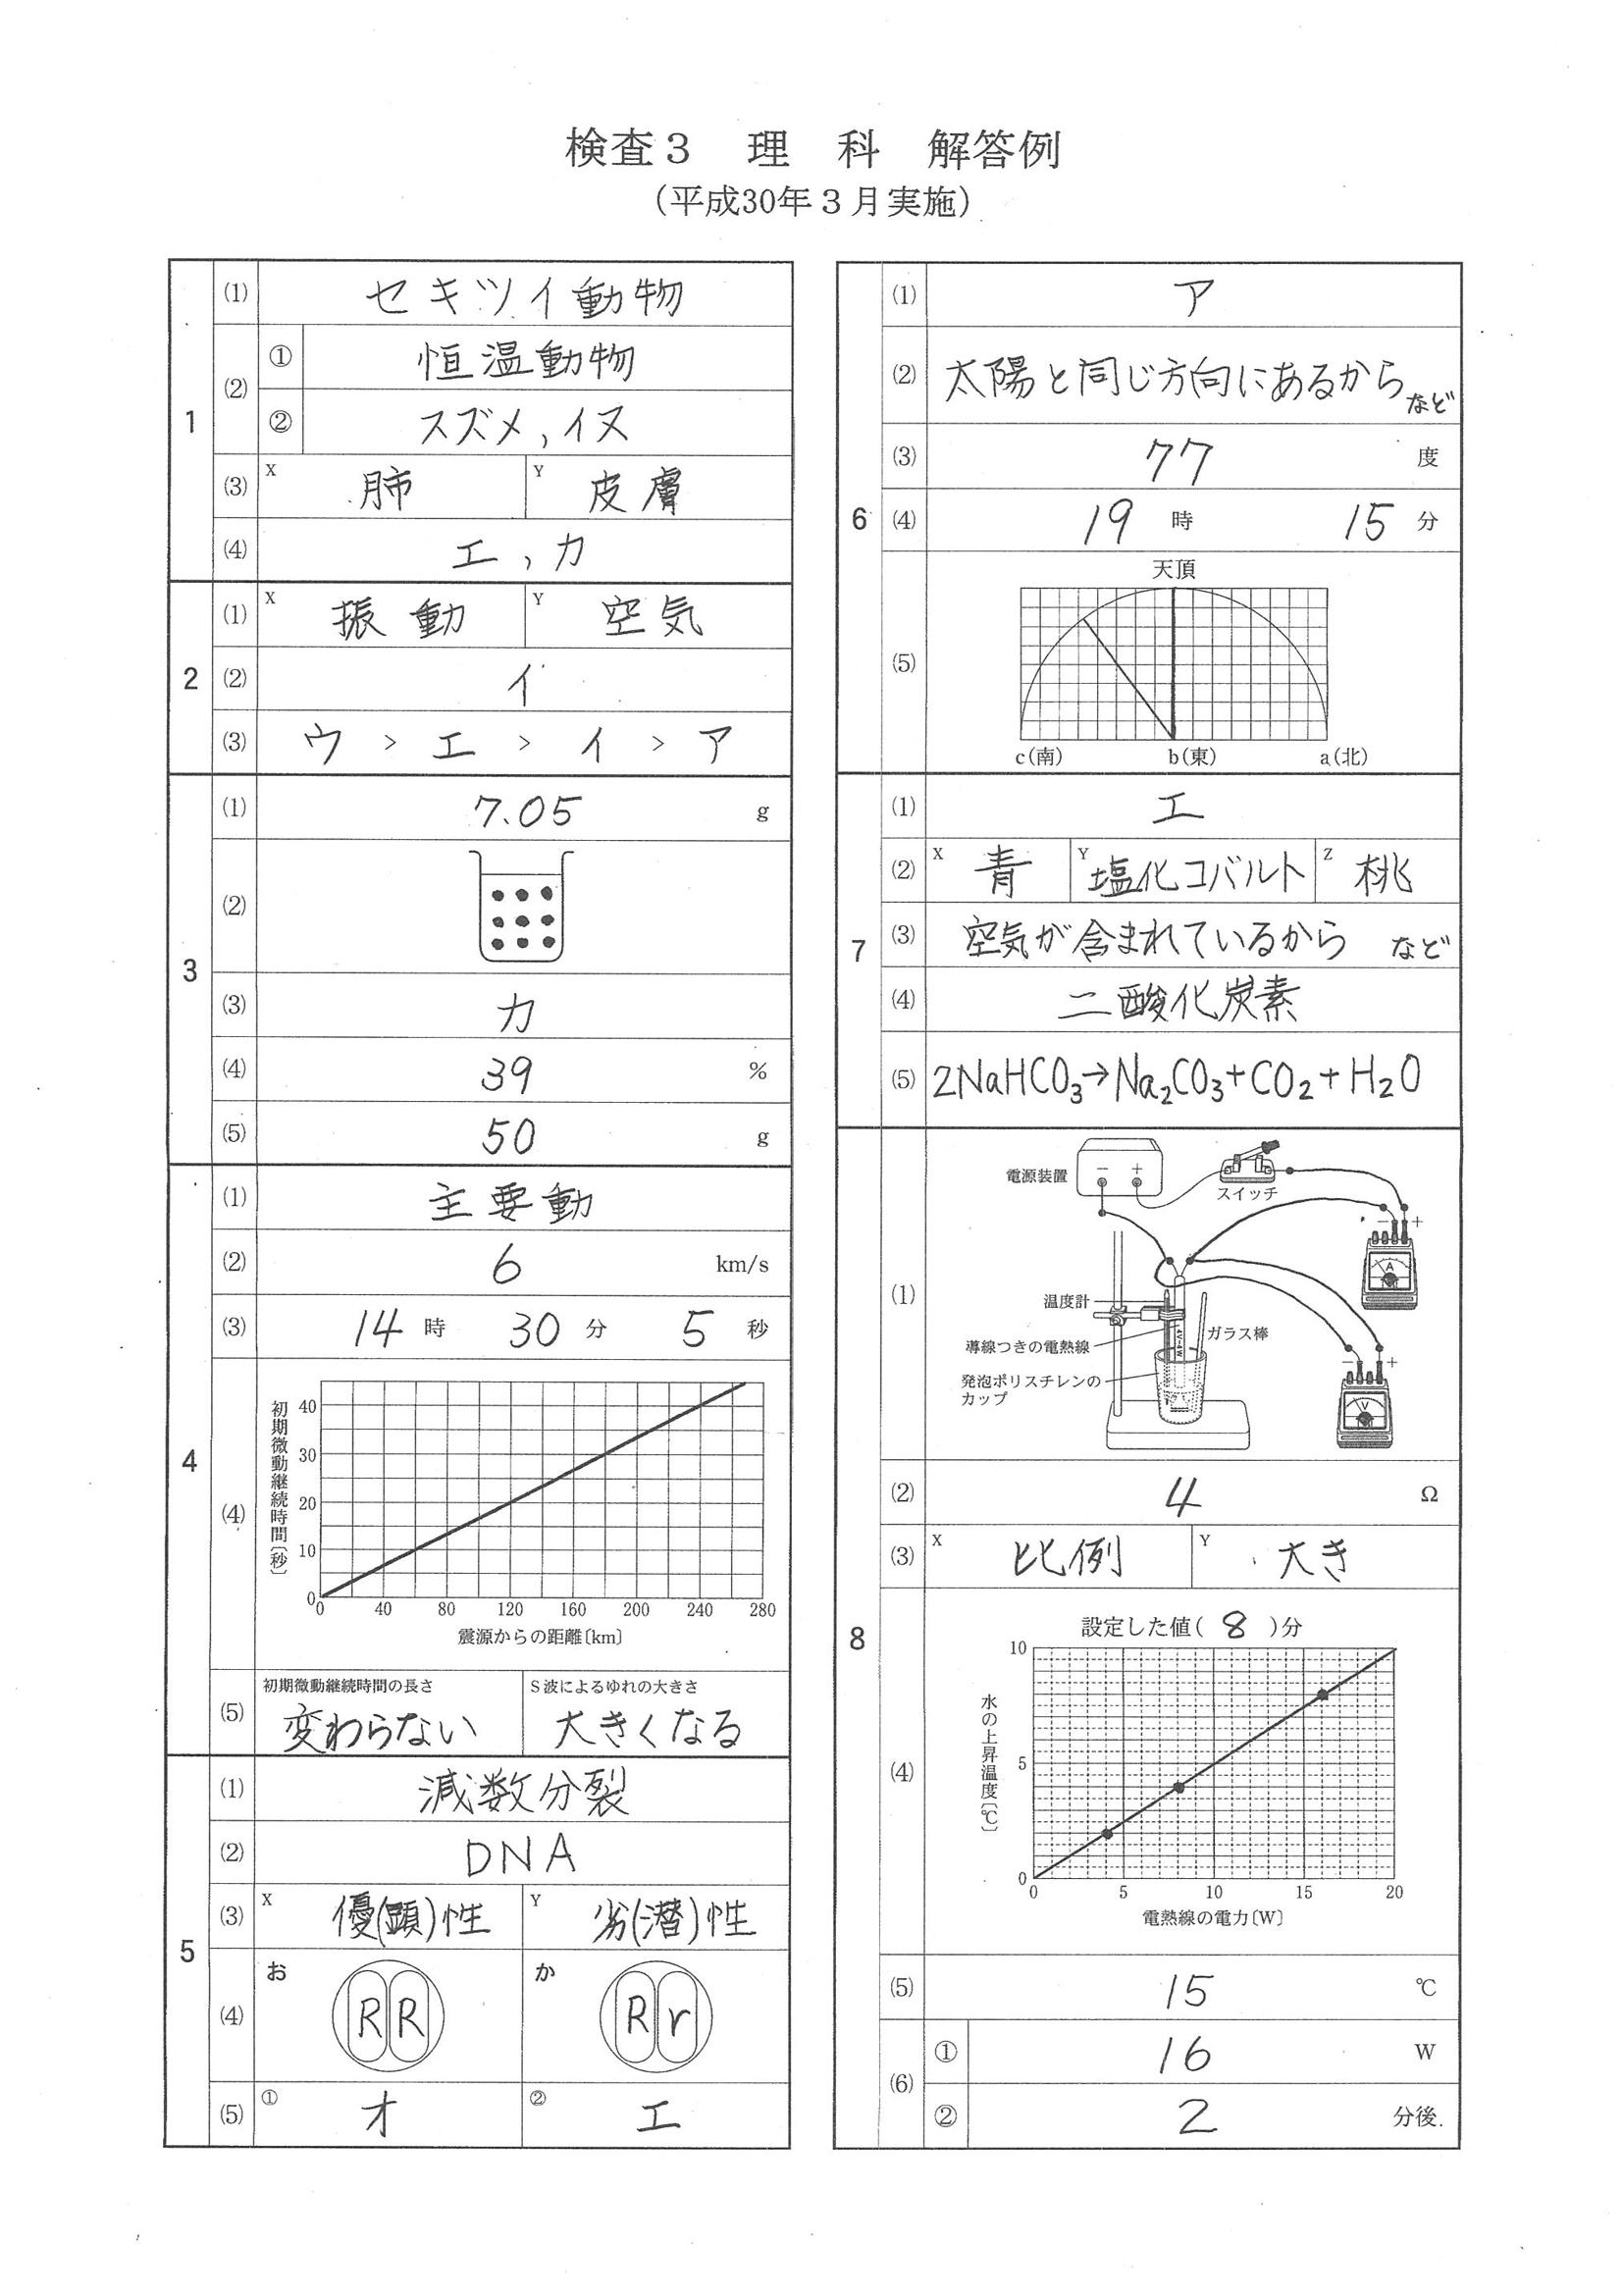 検査３　理　科　解答例
（平成30年３月実施）
1
(1) セキツイ動物
(2) ① 恒温動物
② スズメ，イヌ
(3) X 肺 Y 皮膚
(4) エ，カ
2
(1) X 振動 Y 空気
(2) イ
(3) ウ ＞ エ ＞ イ ＞ ア
3
(1) 7.05 g
(2)
(3) カ
(4) 39 %
(5) 50 g
4
(1) 主要動
(2) 6 km/s
(3) 14 時 30 分 5 秒
(4)
初期微動継続時間〔秒〕
40
30
20
10
0
0 40 80 120 160 200 240 280
震源からの距離〔km〕
(5) 初期微動継続時間の長さ S波によるゆれの大きさ
変わらない 大きくなる
5
(1) 減数分裂
(2) DNA
(3) X 優(顕)性 Y 劣(潜)性
(4) お RR か Rr
(5) ① オ ② エ
6
(1) ア
(2) 太陽と同じ方向にあるから など
(3) 77 度
(4) 19 時 15 分
(5)
天頂
c(南) b(東) a(北)
7
(1) エ
(2) X 青 Y 塩化コバルト Z 桃
(3) 空気が含まれているから など
(4) 二酸化炭素
(5) 2NaHCO₃→Na₂CO₃+CO₂+H₂O
8
(1)
電源装置 − ＋
スイッチ
− ＋
A
温度計
ガラス棒
導線つきの電熱線
4V-4W
発泡ポリスチレンの
カップ
− ＋
V
(2) 4 Ω
(3) X 比例 Y 大き
(4)
設定した値( 8 )分
水の上昇温度〔℃〕
10
5
0
0 5 10 15 20
電熱線の電力〔W〕
(5) 15 ℃
(6) ① 16 W
② 2 分後